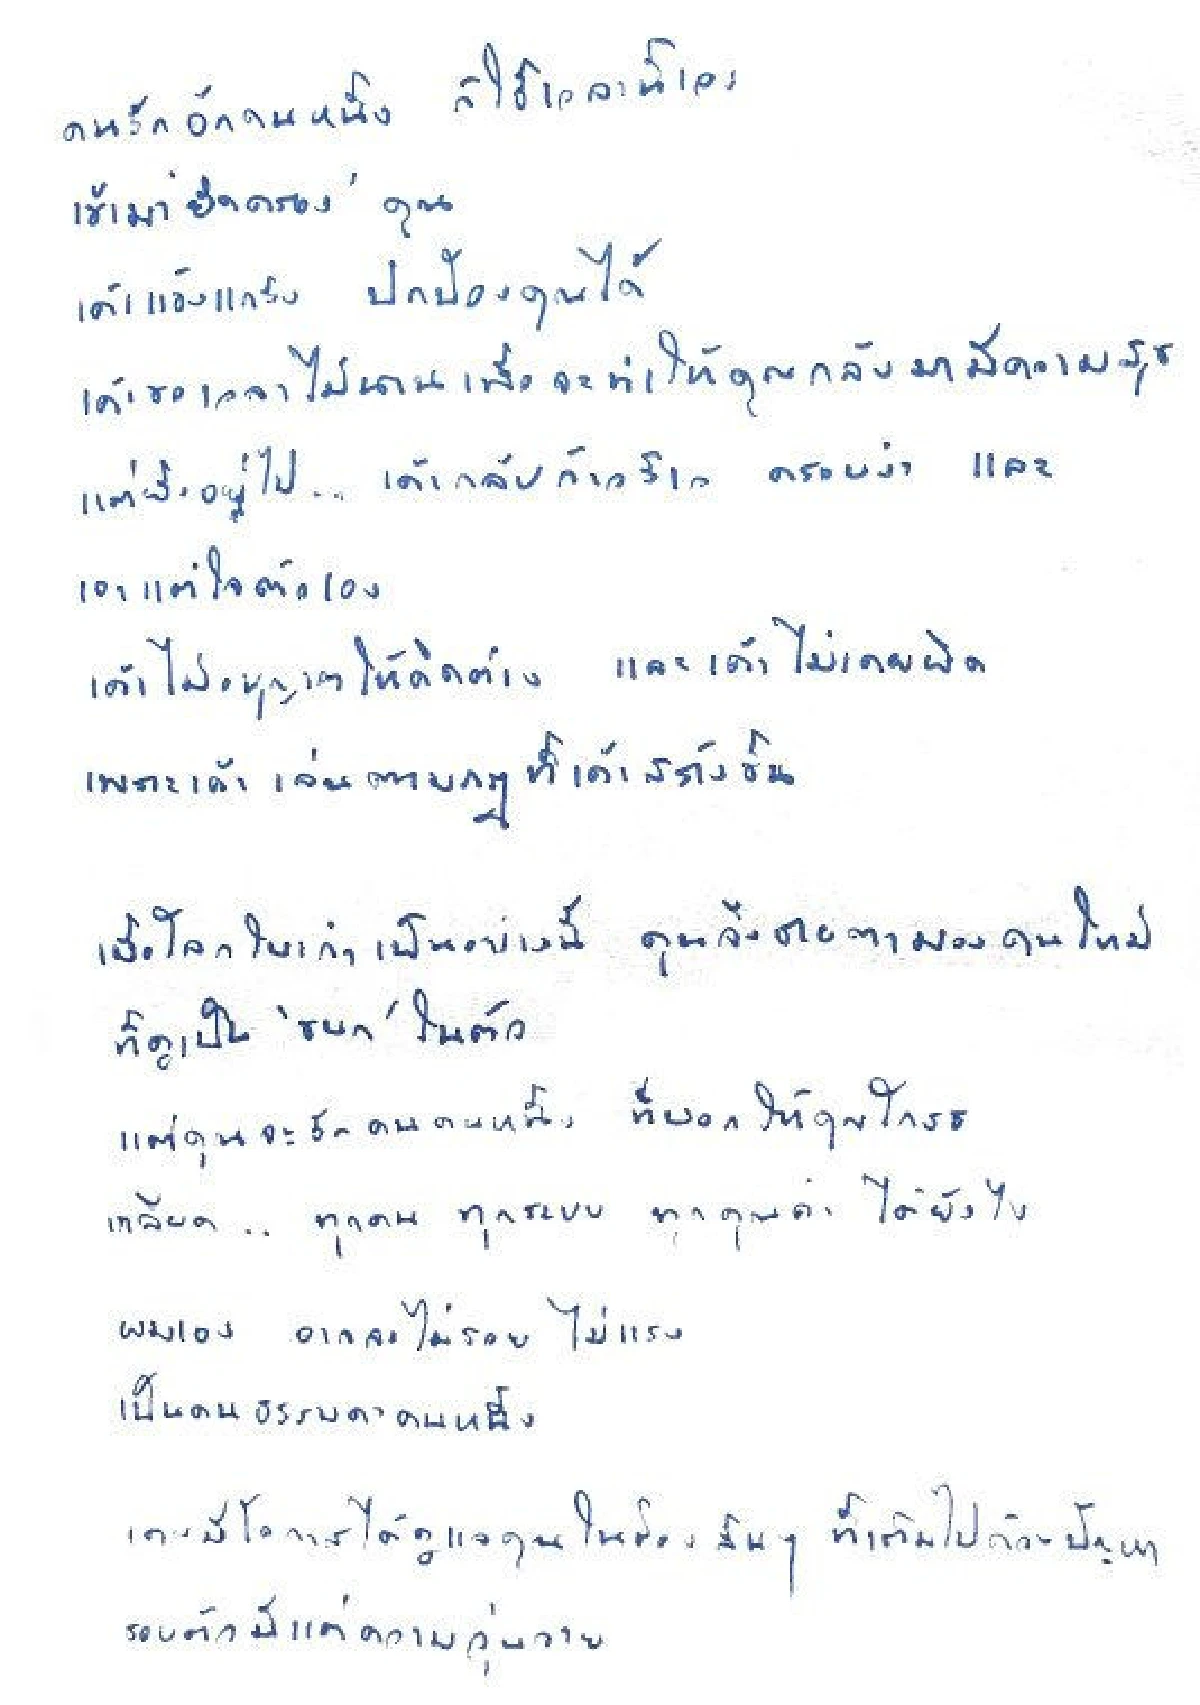 คนรักอีกคนหนึ่ง ก็ใช้เวลานี้เอง
เข้ามา 'ยึดครอง' คุณ
เค้าแข็งแกร่ง ปกป้องคุณได้
เค้าขอเวลาไม่นานเพื่อจะทำให้คุณกลับมามีความสุข
แต่ยิ่งอยู่ไป.. เค้ากลับก้าวร้าว ครอบงำ และ
เอาแต่ใจตัวเอง
เค้าไม่อนุญาตให้คิดต่าง และเค้าไม่เคยผิด
เพราะเค้า เล่นตามกฎที่เค้าสร้างขึ้น
เมื่อโลกใบเก่าเป็นอย่างนี้ คุณจึงชายตามองคนใหม่
ที่ดูเป็น 'ขบถ' ในตัว
แต่คุณจะรักคนคนหนึ่ง ที่บอกให้คุณโกรธ
เกลียด.. ทุกคน ทุกระบบ ทุกคุณค่า ได้ยังไง
ผมเอง อาจจะไม่รวย ไม่แรง
เป็นคนธรรมดาคนหนึ่ง
เคยมีโอกาสได้ดูแลคุณในช่วงสั้นๆ ที่เต็มไปด้วยปัญหา
รอบตัวมีแต่ความวุ่นวาย